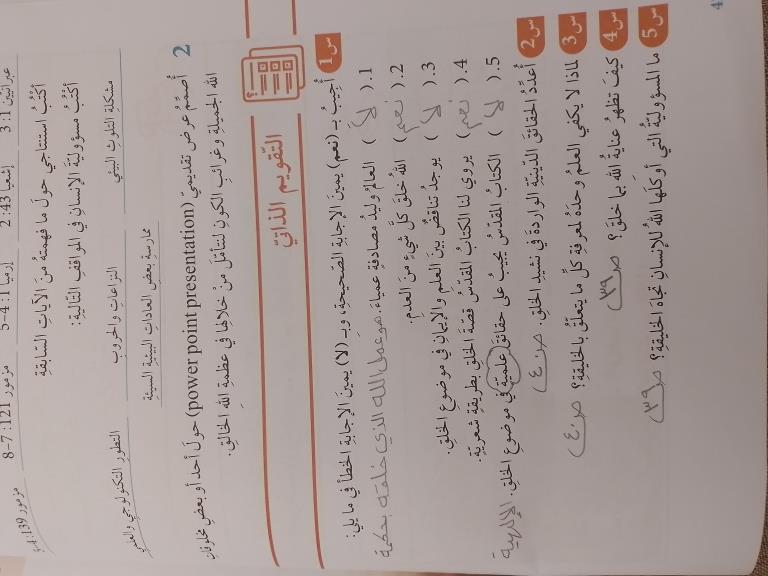 مزمور 139: 1-4
مزمور 121: 7-8
إرميا 1: 4-5
إشعيا 43: 2
عبرانيّين 1: 3
أكْتُبُ استنتاجي حولَ ما فهمتهُ منَ الآياتِ السّابقةِ
أكْتُبُ مسؤوليّةَ الإنسانِ في المواقفِ التّاليةِ:
مشكلةِ التلوثِ البيئي
النزاعاتِ والحروبِ
التطورِ التكنولوجي والعلمي
ممارسةِ بعضِ العاداتِ البيئيةِ السيئةِ
2 أُصمّمُ عرضَ تقديميّ (power point presentation) حولَ أحد أو بعضِ مخلوقاتِ
اللهِ الجميلةِ وغرائبِ الكونِ لنتأمّلَ منْ خلالها في عظمةِ اللهِ الخالقِ.
التّقويم الذاتيّ
س1 أُجيبُ بـ (نعم) يمينَ الإجابةِ الصّحيحةِ، وبـ (لا) يمينَ الإجابةِ الخطأ في ما يلي:
1. ( لا ) العالمُ وليدُ مصادفةٍ عمياءَ. هو عمل الله الذي خلقه بحكمة
2. ( نعم ) اللهُ خلقَ كلَّ شيءٍ منَ العدمِ.
3. ( لا ) يوجدُ تناقضٌ بينَ العلمِ والإيمانِ في موضوعِ الخلقِ.
4. ( نعم ) يروي لنا الكتابُ المقدّسُ قصّةَ الخلقِ بطريقةٍ شعريّةٍ.
5. ( لا ) الكتابُ المقدّسُ يجيبُ على حقائقَ علميّةٍ في موضوعِ الخلقِ. الإلهية
س2 أُعدّدُ الحقائقَ الدّينيّةَ الواردةَ في نشيدِ الخلقِ. ص٤٠
س3 لماذا لا يكفي العلمُ وحدَهُ لمعرفةِ كلِّ ما يتعلّقُ بالخليقةِ؟ ص٤٠
س4 كيفَ تظهرُ عنايةُ اللهِ بما خلقَ؟ ص٣٩
س5 ما المسؤوليّةُ التي أوكلَها اللهُ للإنسانِ تجاهَ الخليقةِ؟ ص٣٩